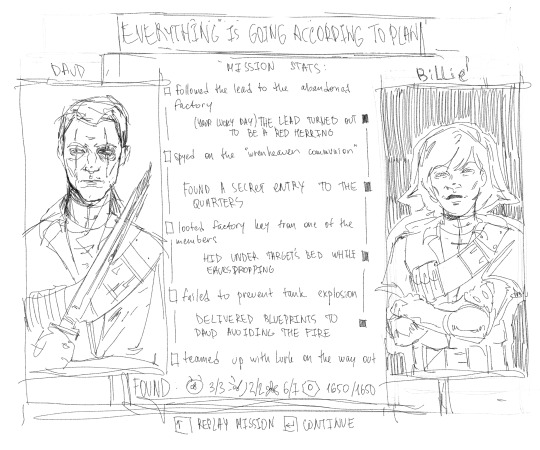 "EVERYTHING" IS GOING ACCORDING TO PLAN
DAUD
MISSION STATS:
Billie
followed the lead to the abandoned
factory
(YOUR LUCKY DAY) THE LEAD TURNED OUT
TO BE A RED HERRING
spyed on the "wrenhaven communion"
FOUND A SECRET ENTRY TO THE
QUARTERS
looted factory key from one of the
members
HID UNDER TARGET'S BED WHILE
EAVESDROPPING
failed to prevent tank explosion
DELIVERED BLUEPRINTS TO
DAUD AVOIDING THE FIRE
teamed up with Lurk on the way out
FOUND: 3/3 2/2 6/7 1650/1650
REPLAY MISSION CONTINUE